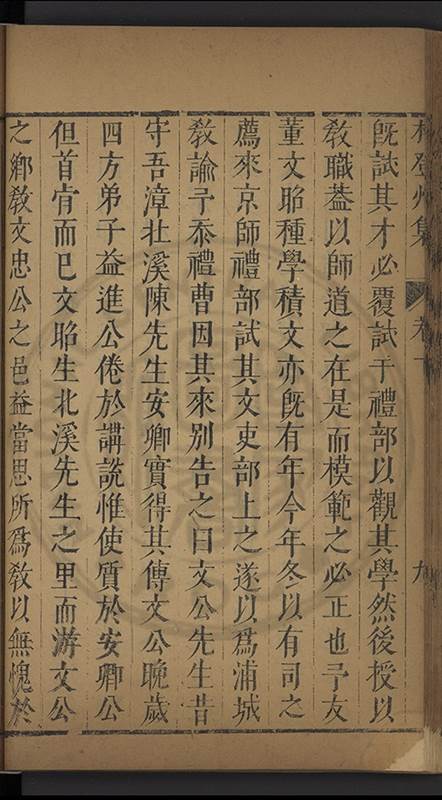 林登州集 卷十 九
既試其才必覆試于禮部以觀其學然後授以
敎職葢以師道之在是而模範之必正也予友
董文昭種學積文亦既有年今年冬以有司之
薦來京師禮部試其文吏部上之遂以爲浦城
敎諭予忝禮曹因其來別告之曰文公先生昔
守吾漳壯溪陳先生安卿實得其傳文公晩歲
四方弟子益進公倦於講説惟使質於安卿公
但首肯而已文昭生北溪先生之里而游文公
之鄉敎文忠公之邑益當思所爲敎以無愧於